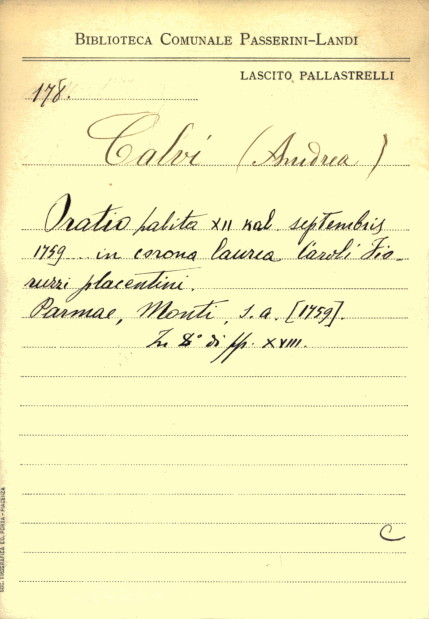 BIBLIOTECA COMUNALE PASSERINI-LANDI
LASCITO PALLASTRELLI
178.
Calvi (Andrea)
Oratio habita XII kal. septembris
1759 ... in corona laurea Caroli Fio-
ruzzi placentini.
Parmae, Monti, s.a. [1759].
In 8° di pp. XVIII.
C